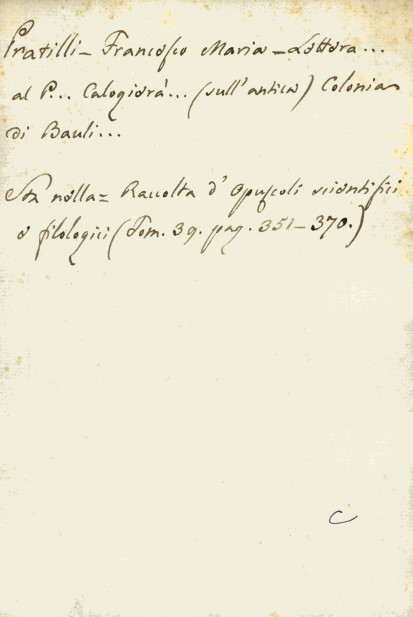 Pratilli - Francesco Maria - Lettera...
al P... Calogierà... (sull'antica) Colonia
di Bauli...
Sta nella = Raccolta d'Opuscoli scientifici
e filologici (Tom. 39. pag. 351 - 370.)
C